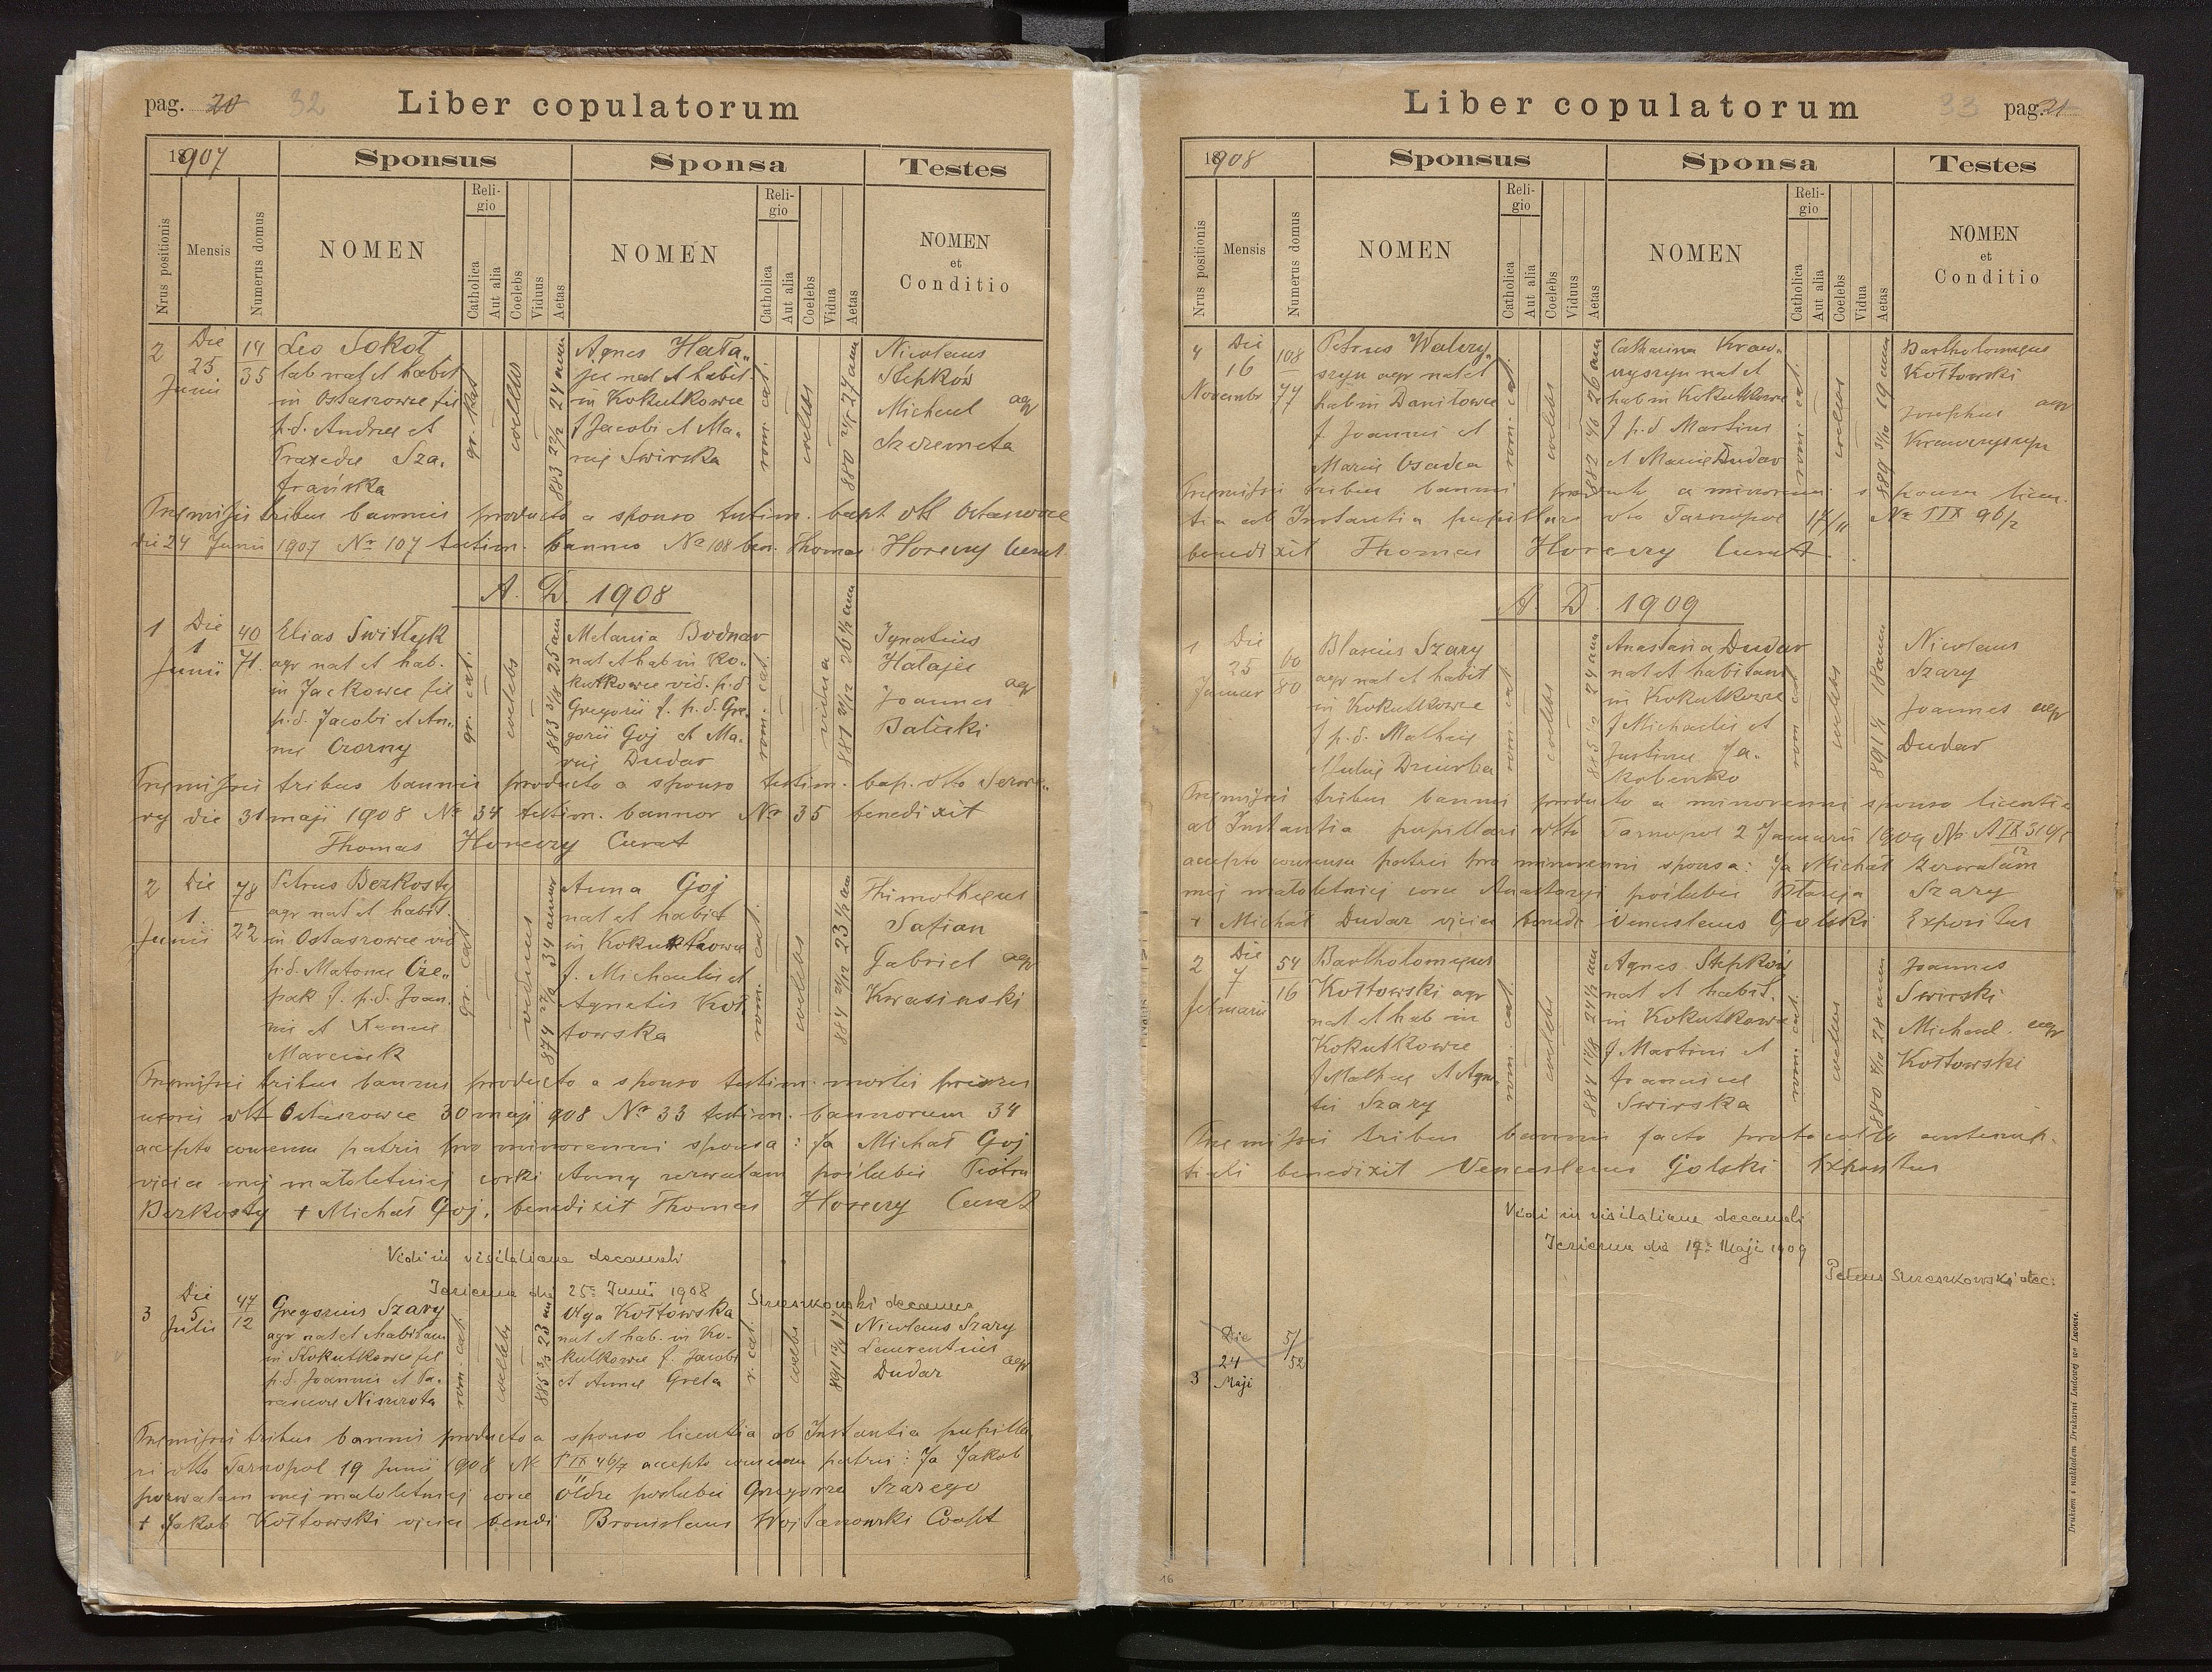 pag. 20 32 Liber copulatorum
1907 Sponsus Sponsa Testes
Nrus positionis Mensis Numerus domus NOMEN Religio Catholica Aut alia Coelebs Viduus Aetas NOMEN Religio Catholica Aut alia Coelebs Vidua Aetas NOMEN et Conditio
2 Die 25 Junii 14 35
Leo Sokoł
lab nat et habit
in Ostaszowce fil
p.d. Andreae et
Praxedae Sza-
frańska
gr. kat
coelebs
24 ann
Agnes Hała-
jce nat et habit
in Kokutkowce
f Jacobi et Ma-
riae Swirska
rom. cat.
coelebs
880 27 ann
Nicolaus
Stepków
Michael agr
Szeremeta
Praemissis tribus bannis producto a sponso testim. bapt dtt Ostaszowce
die 24 Junii 1907 Nr 107 testim. bannis Nr 108 ben. Thomas Horeczy Curat.
A. D. 1908
1 Die 1 Junii 40 71.
Elias Switłyk
agr nat et hab.
in Jackowce fil
p.d. Jacobi et An-
nae Czorny
gr. cat.
coelebs
883 25 ann
Melania Bodnar
nat et hab in Ko-
kutkowce vid. p.d
Gregorii f. p.d. Gre-
gorii Goj et Ma-
riae Dudar
rom. cat.
vidua
881 26 1/2 ann
Ignatius
Hałajce
Joannes agr
Balicki
Praemissis tribus bannis producto a sponso testim. bap. dtto Jezier-
ry die 31 maji 1908 Nr 34 testim. bannor Nr 35 benedixit
Thomas Horeczy Curat
2 Die 1. Junii 78 22
Petrus Bezkosty
agr nat et habit.
in Ostaszowce vid
p.d. Matronae Cze-
pak f. p.d. Joan-
nis et Xeniae
Marciuk
gr. cat.
viduus
874 34 annor
Anna Goj
nat et habit
in Kokutkowce
f. Michaelis et
Agnetis Koł-
towska
rom. cat.
coelebs
884 23 1/2 ann
Thimotheus
Safian
Gabriel agr
Krasinski
Praemissis tribus bannis producto a sponso testim. mortis prioris
uxoris dtt Ostaszowce 30 maji 908 Nr 33 testim. bannorum 34
accepto consensu patris pro minorenni sponsa: Ja Michał Goj
ojciec mej małoletniej corki Anny zezwalam poślubic Piotra
Bezkosty + Michał Goj. benedixit Thomas Horeczy Curat
Vidi in visitatione decanali
Jezierna die 25 Junii 1908
Szuszkowski decanus
3 Die 5 Julii 47 12
Gregorius Szary
agr nat et habitans
in Kokutkowce fil
p.d. Joannis et Pa-
rascevae Niszczota
rom. cat
coelebs
885 23 ann
Olga Kołtowska
nat et hab. in Ko-
kutkowce f. Jacobi
et Annae Greta
r. cat.
coelebs
891 17
Nicolaus Szary
Laurentius agr
Dudar
Praemissis tribus bannis producto a sponso licentia ab Instantia pupilla-
ri dtto Tarnopol 19 Junii 1908 N P IX 46/7 accepto consensu patris: Ja Jakob
pozwalam mej małoletniej corce Oldze poslubic Gregorza Szarego
+ Jakob Kołtowski ojciec bendi Bronislaus Wojtanowski Coopt
Liber copulatorum 33 pag. 21
1908 Sponsus Sponsa Testes
Nrus positionis Mensis Numerus domus NOMEN Religio Catholica Aut alia Coelebs Viduus Aetas NOMEN Religio Catholica Aut alia Coelebs Vidua Aetas NOMEN et Conditio
4 Die 16 Novembr 108 77
Petrus Walczy-
szyn agr nat et
hab in Daniłowce
f. Joannis et
Mariae Osadca
rom. cat.
coelebs
882 26 ann
Catharina Kraw-
czyszyn nat et
hab in Kokutkowce
f p.d Martini
et Mariae Dudar
rom. cat.
coelebs
889 19 ann
Bartholomaeus
Kołtowski
Josephus agr
Krawczyszyn
Praemissis tribus bannis producto a minorenni sponsa licen-
tia ab Instantia pupillari dto Tarnopol 14/11 Nr P IX 96/2
benedixit Thomas Horeczy Curat.
A. D. 1909
1 Die 25 Januar 60 80
Blasius Szary
agr nat et habit
in Kokutkowce
f p.d. Mathae
et Juliae Dziurba
rom. cat
coelebs
885 24 ann
Anastasia Dudar
nat et habitans
in Kokutkowce
f Michaelis et
Justinae Ja-
kobenko
rom cat
coelebs
891 18 ann
Nicolaus
Szary
Joannes agr
Dudar
Praemissis tribus bannis producto a minorenni sponso licentia
ab Instantia pupillari dtto Tarnopol 2 Januarii 1909 Nr A IX
accepto consensu patris pro minorenni sponsa: Ja Michał zezwalam
mej małoletniej corce Anastazyi poślubic Błażeja Szary
+ Michał Dudar ojciec benedi Venceslaus Golski Expositus
2 Die 7 februarii 54 16
Bartholomaeus
Kołtowski agr
nat et hab in
Kokutkowce
f Mathae et Agne-
tis Szary
rom. cat.
coelebs
884 24 1/2 ann
Agnes Stepków
nat et habit.
in Kokutkowce
f Martini et
Franciscae
Swirska
rom. cat.
coelebs
880 28 ann
Joannes
Swirski
Michael. agr
Kołtowski
Praemissis tribus bannis facto protocollo antenup-
tiali benedixit Venceslaus Golski Expositus
Vidi in visitatione decanali
Jezierna die 19 Maji 1909
Petrus Szuszkowski dec:
3 Die 24 Maji 5/52
Drukiem i nakładem Drukarni Ludowej we Lwowie.
16